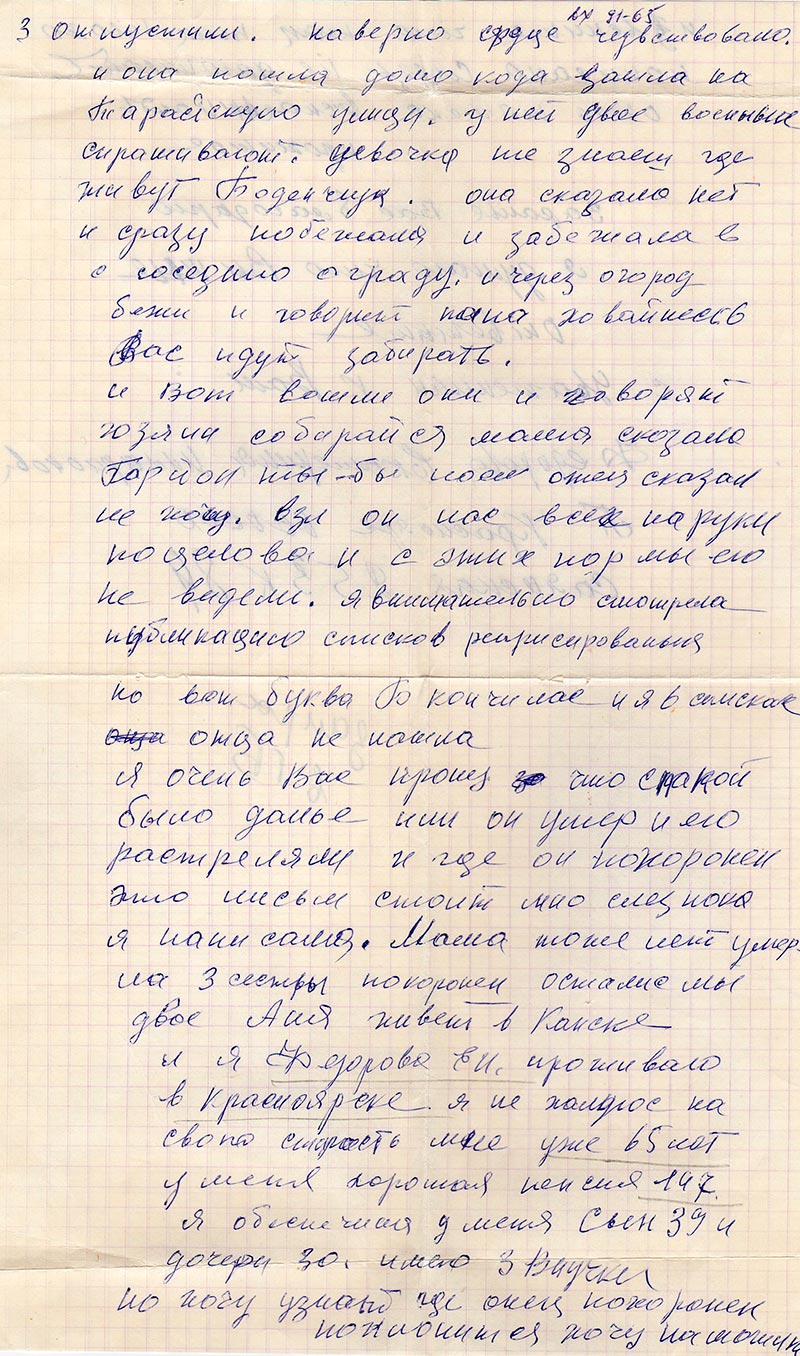 вх 91-65
3 отпустили. наверно сердце чувствовало.
и она пошла домо кода вошла на
Тарайскую улицу. у ней двое военывие
спрашивают. девочка не знаеш где
живут Боденчук. она сказала нет
и сразу побежала и забежала в
с соседнию ограду. и через огород
бежи и говорит папа ховайтесь
Вас идут забирать.
и Вот вошли они и говорят
хозяин собирайся мама сказала
ты-бы поел отец сказал
не хочу. взл он нас всех на руки
поцелова и с этих пор мы его
не видели. я внимательно смотрела
публикацию списков реприсированых
но вот буква Б кончилас и я в списках
отца не нашла
я очень Вас прошу что с папой
было далье или он умер и его
растреляли и где он похоронен
это письм стоит мно слез пока
я написала. Мама тоже нет умер
ла 3 сестры похоронен осталис мы
двое Аня живет в Канске
и я Федорова Е.И. проживаю
в Красноярске. я не жалуюс на
свою старость мне уже 65 лет
у меня хорошая пенсия 147.
я обеспечина у меня Сын 39 и
дочери 30. имею 3 Внучки
но хочу узнать где отец похоронен
поклонится хочу на могилу